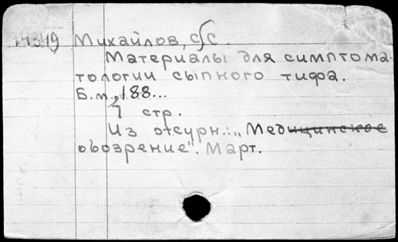 Михайлов, с/с.
Материалы для симптома
тологии сыпного тифа.
Б.м., 188...
7 стр.
Из отсурн.: „Медицинское
обозрение". Март.